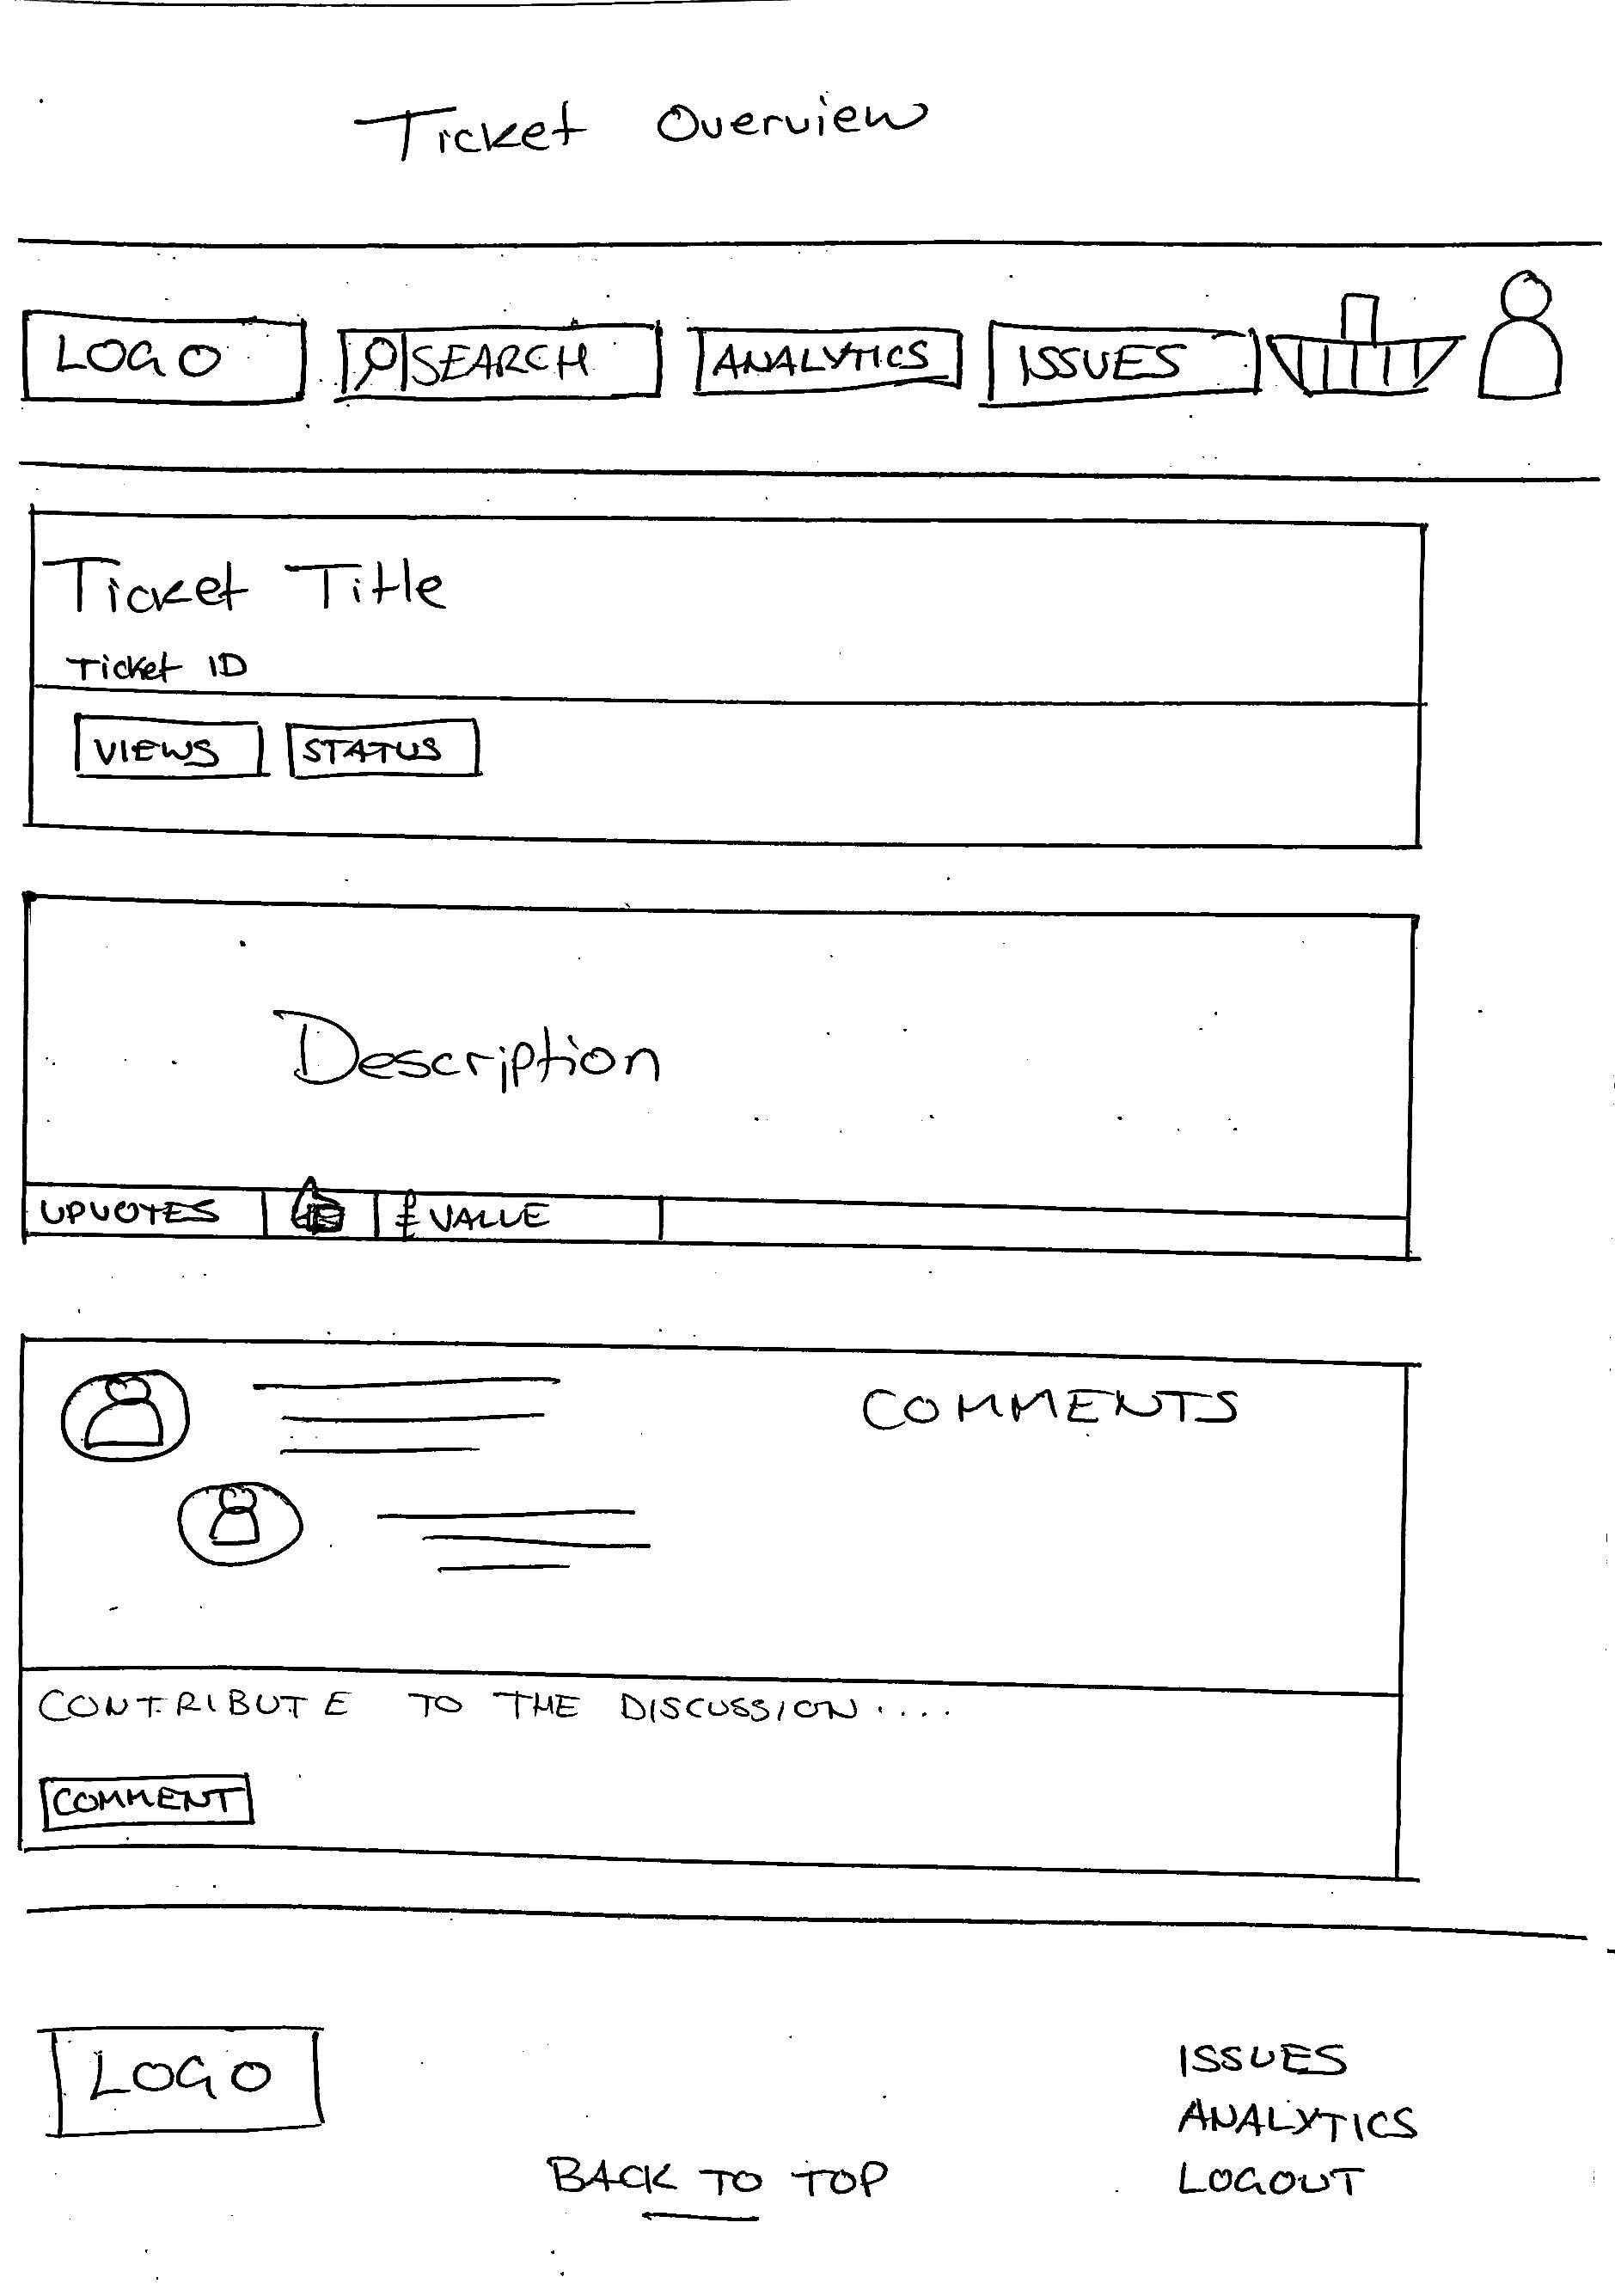 Ticket Overview
LOGO SEARCH ANALYTICS ISSUES
Ticket Title
Ticket ID
VIEWS STATUS
Description
UPVOTES £ VALUE
COMMENTS
CONTRIBUTE TO THE DISCUSSION....
COMMENT
LOGO
ISSUES
ANALYTICS
BACK TO TOP
LOGOUT